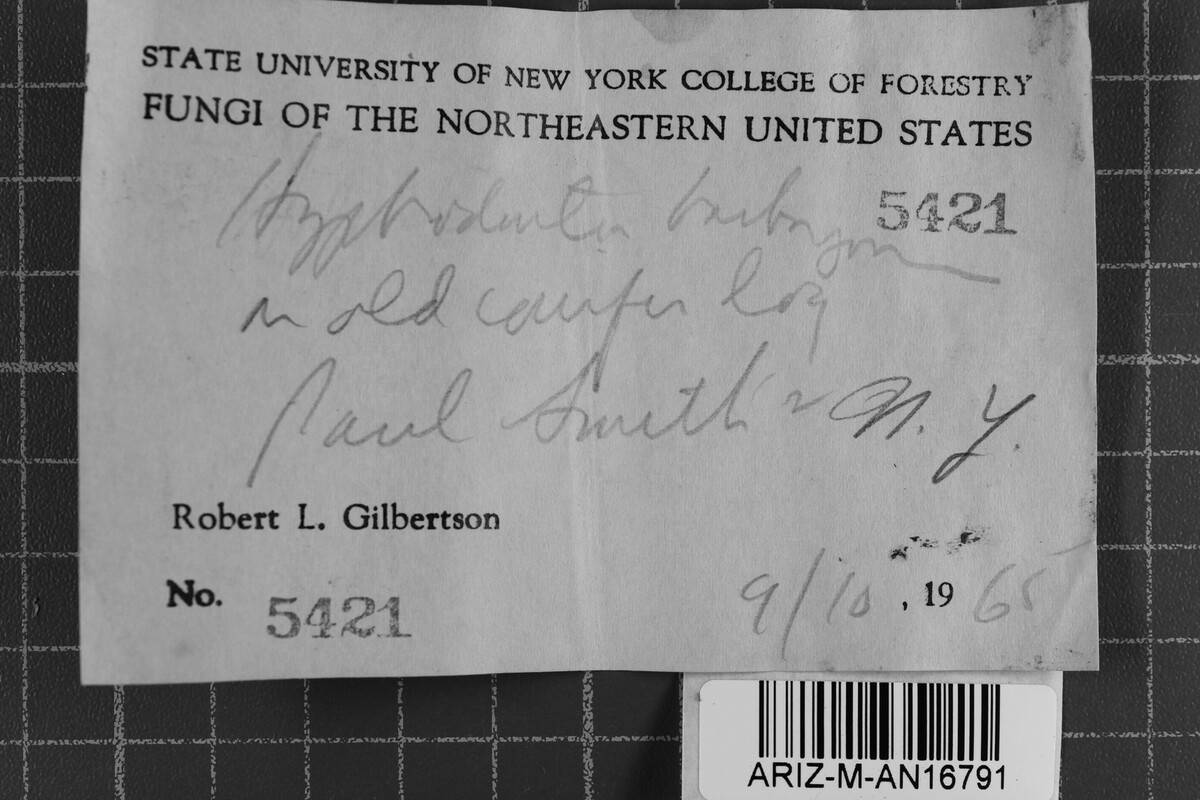 STATE UNIVERSITY OF NEW YORK COLLEGE OF FORESTRY
FUNGI OF THE NORTHEASTERN UNITED STATES
5421
on old conifer log
Paul Smith's N. Y.
Robert L. Gilbertson
No. 5421
9/10, 1965
ARIZ-M-AN16791